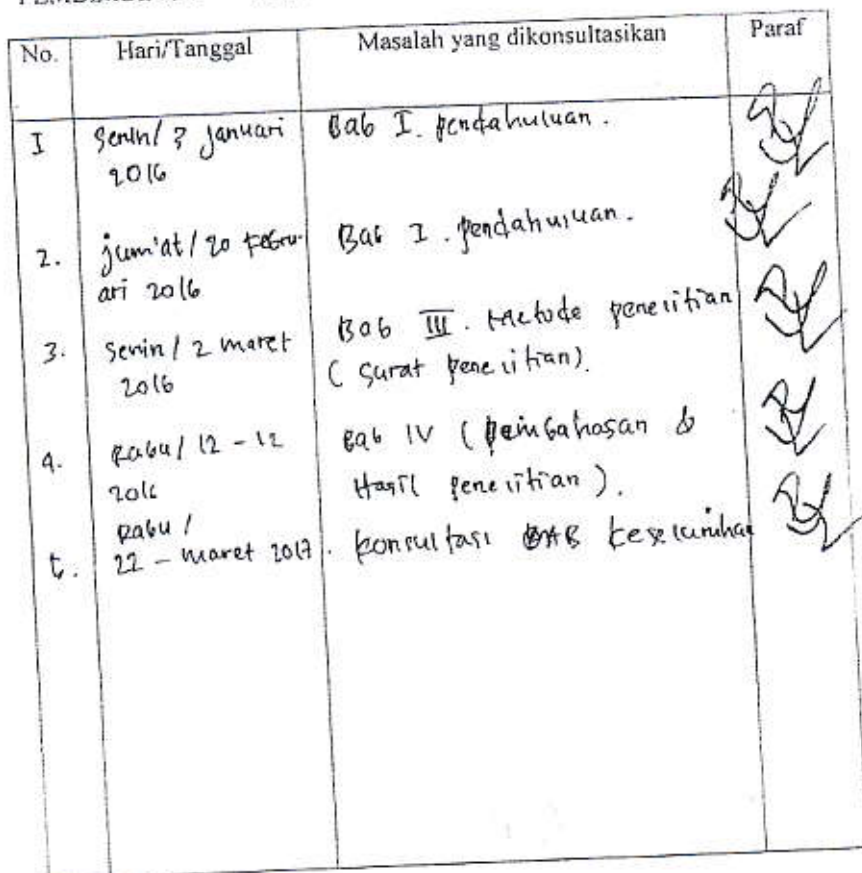 No. Hari/Tanggal Masalah yang dikonsultasikan Paraf
I Senin/ 3 Januari Bab I. pendahuluan.
2016
2. jum'at / 20 Febru- Bab I. pendahuluan.
ari 2016
3. Senin / 2 maret Bab III. Metode penelitian
2016 ( Surat penelitian).
4. Rabu / 12 - 12 Bab IV ( pembahasan &
2016 Hasil penelitian ).
Rabu /
5. 22 - maret 2017. konsultasi BAB keseluruhan